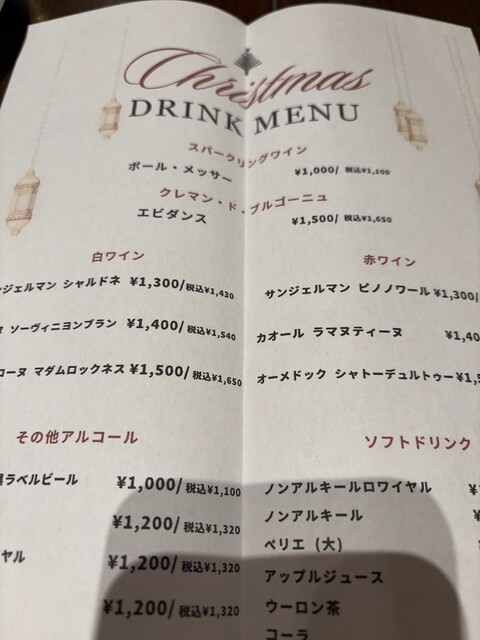 Christmas
DRINK MENU
スパークリングワイン
ポール・メッサー ¥1,000/ 税込¥1,100
クレマン・ド・ブルゴーニュ
エビダンス ¥1,500/ 税込¥1,650
白ワイン
ンジェルマン シャルドネ ¥1,300/税込¥1,430
ソーヴィニヨンブラン ¥1,400/税込¥1,540
ローヌ マダムロックネス ¥1,500/税込¥1,650
赤ワイン
サンジェルマン ピノノワール ¥1,300/
カオール ラマヌティーヌ ¥1,40
オーメドック シャトーデュルトゥー ¥1,5
その他アルコール
ラベルビール ¥1,000/税込¥1,100
¥1,200/税込¥1,320
ヤル ¥1,200/税込¥1,320
¥1,200/税込¥1,320
ソフトドリンク
ノンアルキールロワイヤル ¥
ノンアルキール ¥
ペリエ (大)
アップルジュース
ウーロン茶
コーラ